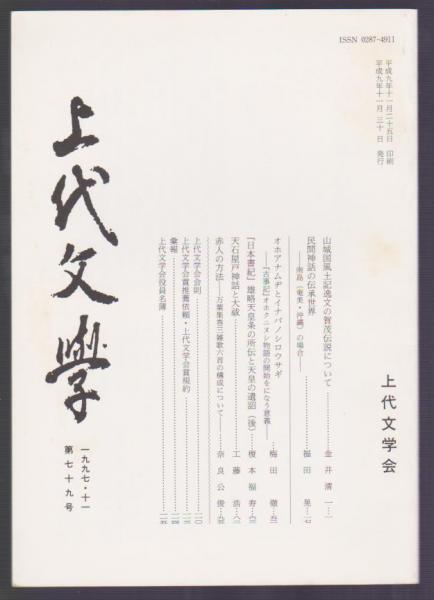 ISSN 0287-4911
平成九年十一月二十五日 印刷
平成九年十一月三十日 発行
上代文学会
山城国風土記逸文の賀茂伝説について……金井清一…一
民間神話の伝承世界
――南島(奄美・沖縄)の場合――……福田晃…一七
オホアナムヂとイナバノシロウサギ
――『古事記』オホクニヌシ物語の開始をになう意義――……梅田徹…
『日本書紀』雄略天皇条の所伝と天皇の遺詔(後)……榎本福寿…
天石屋戸神話と大祓……工藤浩…
赤人の方法――万葉集巻三雑歌六首の構成について――……奈良公俊…
上代文学会会則
上代文学会賞推薦依頼・上代文学会賞規約
彙報
上代文学会役員名簿
上代文學
一九九七・十一
第七十九号